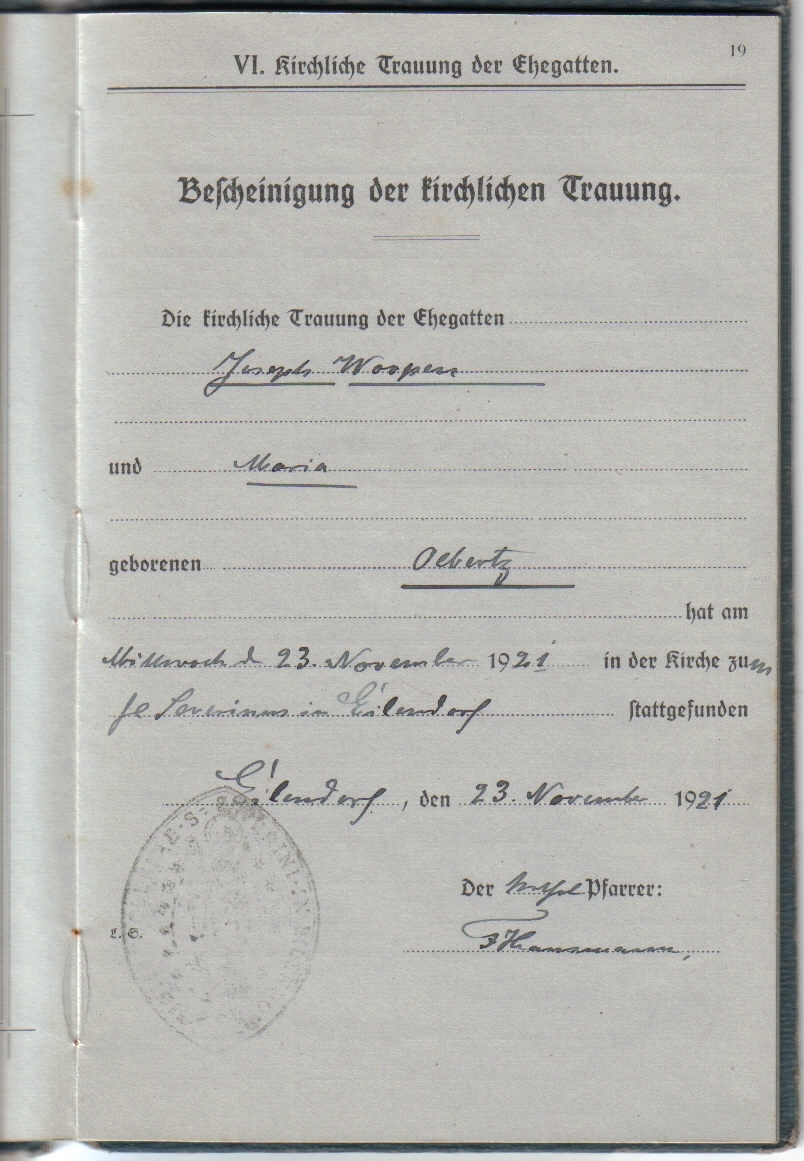 19
VI. Kirchliche Trauung der Ehegatten.
Bescheinigung der kirchlichen Trauung.
Die kirchliche Trauung der Ehegatten
Joseph Woopen
und Maria
geborenen Olbertz
hat am
Mittwoch d 23. November 1921 in der Kirche zum
hl Severinus in Eilendorf stattgefunden
Eilendorf, den 23. November 1921
Der Pfarrer:
L. S.
Hansmann,